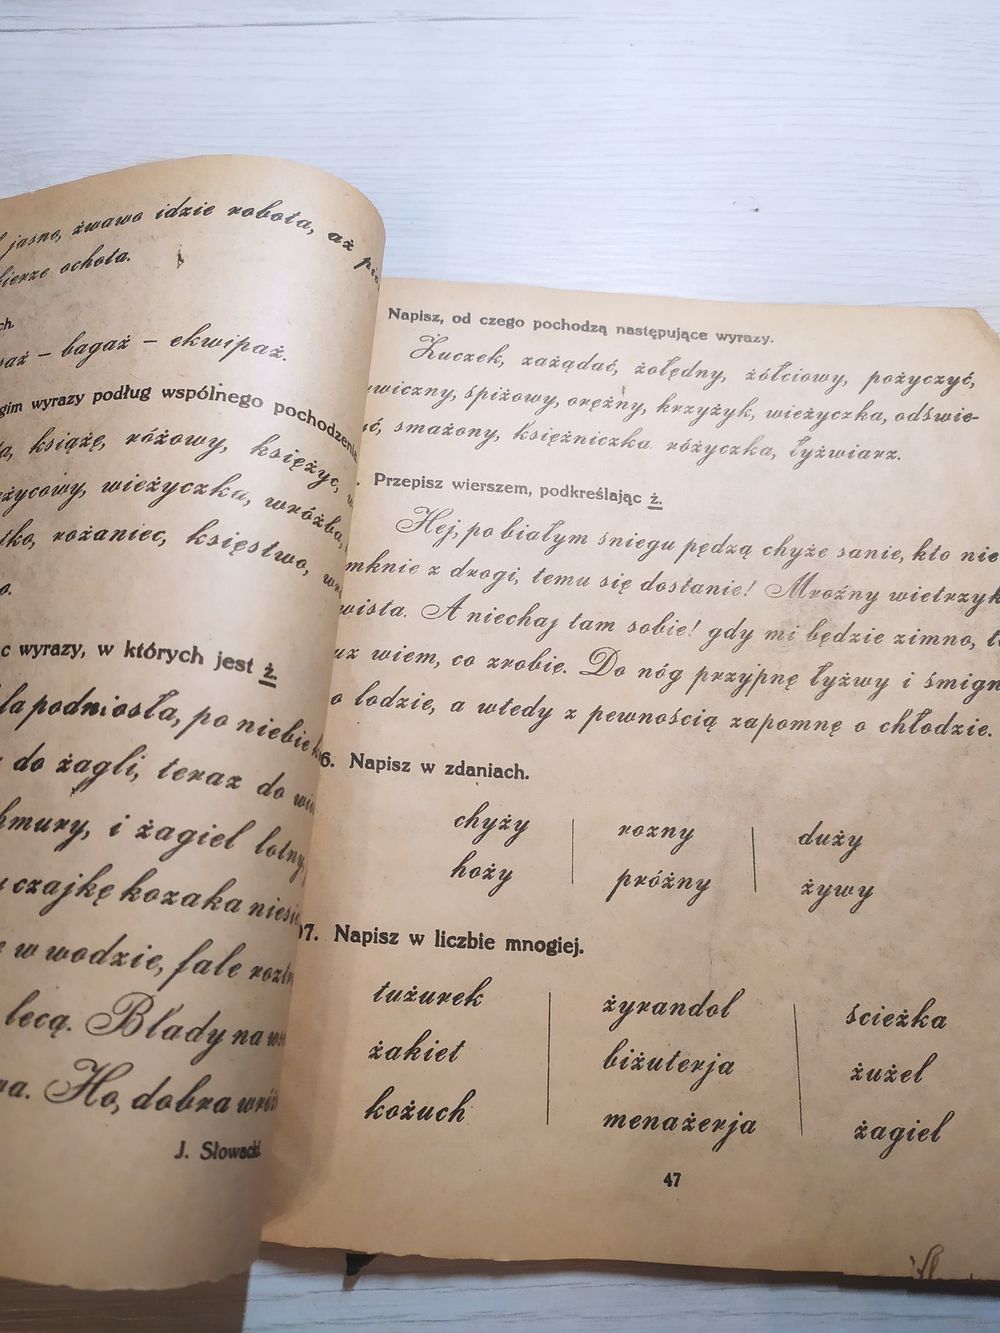 jasno, żwawo idzie robota, aż
bierze ochota.
ch.
saż – bagaż – ekwipaż.
wyrazy podług wspólnego pochodzenia
książę, różowy, księżyc,
wieżyczka, wróżba,
rożaniec, księstwo,
wyrazy, w których jest ż.
podniosła, po niebie
do żagli, teraz do
i żagiel lotny,
czajkę kozaka niesie
w wodzie, fale
lecą. Blady na
Ho, dobra
J. Słowacki
Napisz, od czego pochodzą następujące wyrazy.
Żuczek, zażądać, żołędny, żółciowy, pożyczyć,
śpiżowy, orężny, krzyżyk, wieżyczka, odświe-
smażony, księżniczka różyczka, łyżwiarz.
Przepisz wierszem, podkreślając ż.
Hej, po białym śniegu pędzą chyże sanie, kto nie
mknie z drogi, temu się dostanie! Mroźny wietrzyk
A niechaj tam sobie! gdy mi będzie zimno,
wiem, co zrobię. Do nóg przypnę łyżwy i śmign
o lodzie, a wtedy z pewnością zapomnę o chłodzie.
6. Napisz w zdaniach.
chyży rozny duży
hoży próżny żywy
7. Napisz w liczbie mnogiej.
tużurek żyrandol ścieżka
żakiet biżuterja żużel
kożuch menażerja żagiel
47